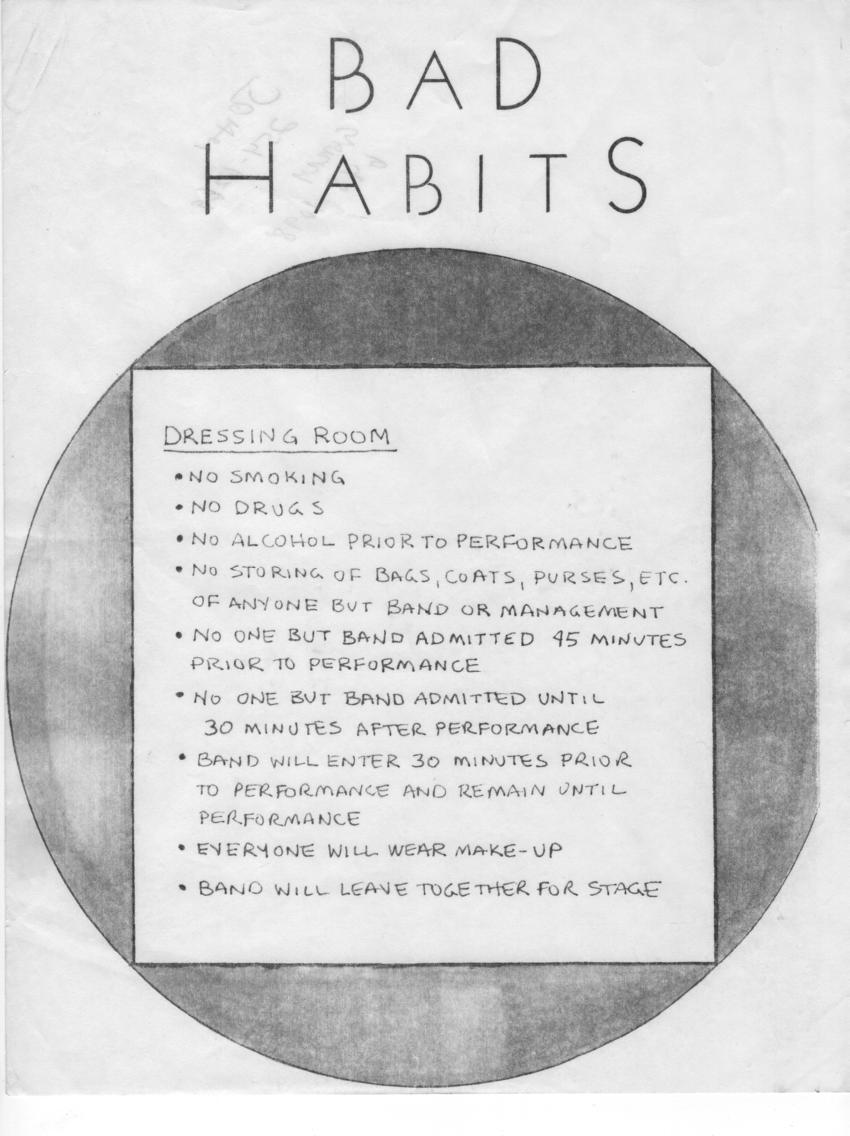 BAD
HABITS
DRESSING ROOM
• NO SMOKING
• NO DRUGS
• NO ALCOHOL PRIOR TO PERFORMANCE
• NO STORING OF BAGS, COATS, PURSES, ETC.
OF ANYONE BUT BAND OR MANAGEMENT
• NO ONE BUT BAND ADMITTED 45 MINUTES
PRIOR TO PERFORMANCE
• NO ONE BUT BAND ADMITTED UNTIL
30 MINUTES AFTER PERFORMANCE
• BAND WILL ENTER 30 MINUTES PRIOR
TO PERFORMANCE AND REMAIN UNTIL
PERFORMANCE
• EVERYONE WILL WEAR MAKE-UP
• BAND WILL LEAVE TOGETHER FOR STAGE